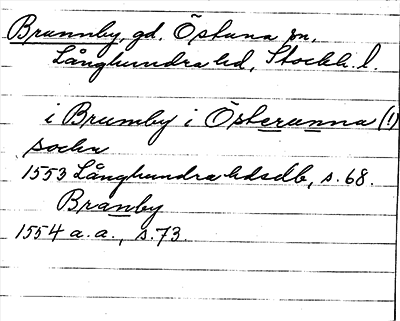 Brunnby, gd. Östuna sn,
Långhundra hd, Stockh. l.
i Brumby i Österunna (!)
sochn
1553 Långhundra hdsdb, s. 68.
Branby
1554 a.a., s. 73.